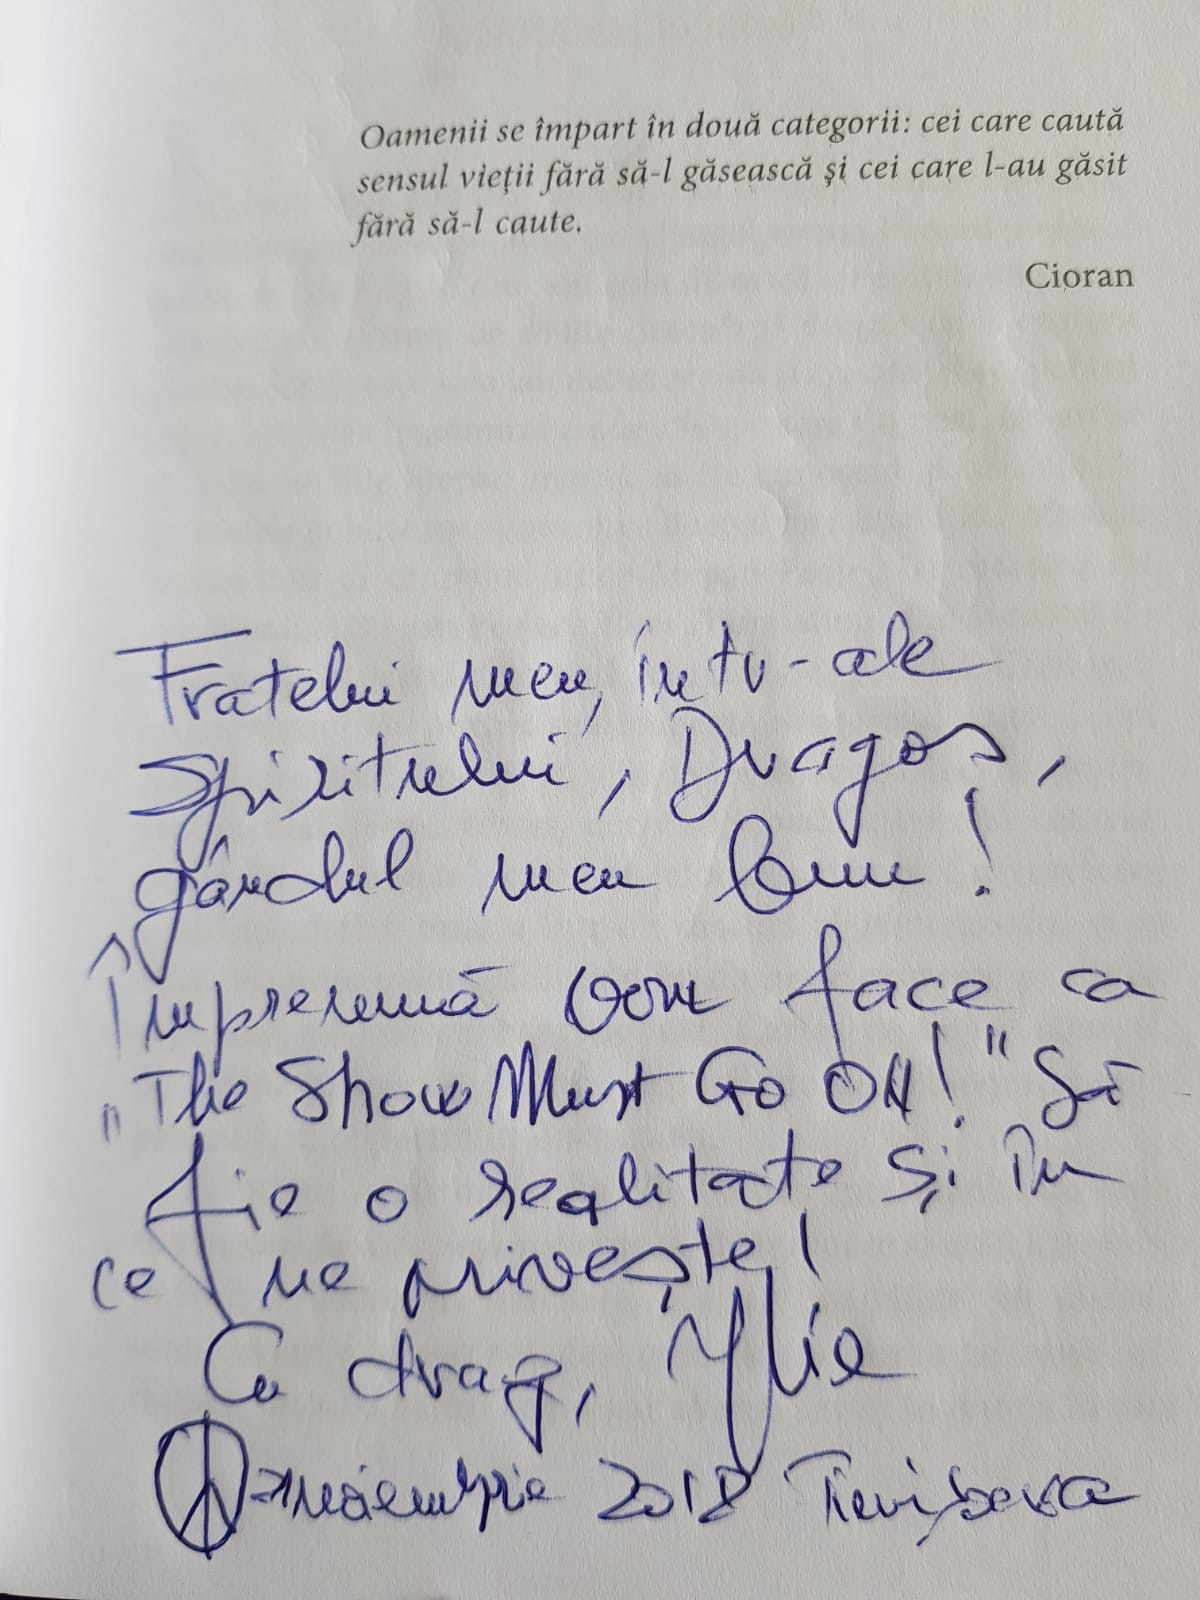 Oamenii se împart în două categorii: cei care caută
sensul vieţii fără să-l găsească şi cei care l-au găsit
fără să-l caute.
Cioran
Fratelui meu, întru-ale
Spiritului, Dragoș,
gândul meu bun!
Împreună vom face ca
„The Show Must Go On!" Să
fie o realitate și în
ce ne privește!
Cu drag, Ylie
noiembrie 2018 Timișoara